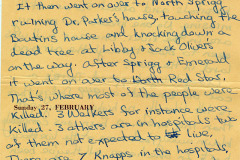 It then went over to North Sprigg
ruining Dr. Parker's house, touching the
Boutins house and knocking down a
dead tree at Libby & Jack Olivers
on the way. After Sprigg & Emerald
it went over to North Red Star,
That's where most of the people were
Killed. 3 Walkers for instance were
Sunday 27, FEBRUARY
Killed. 3 others are in hospitals two
of them not expected to live.
There are 7 Knapps in the hospitals,